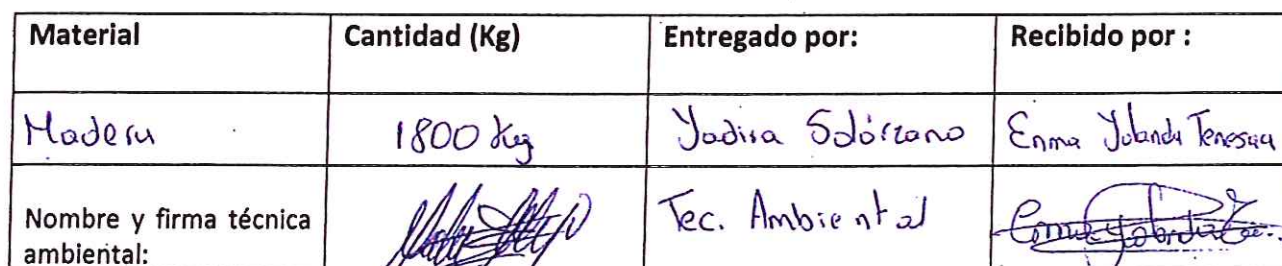 Material Cantidad (Kg) Entregado por: Recibido por :
Madera 1800 Kg Yadira Solórzano Enma Yolanda
Nombre y firma técnica Tec. Ambiental
ambiental: